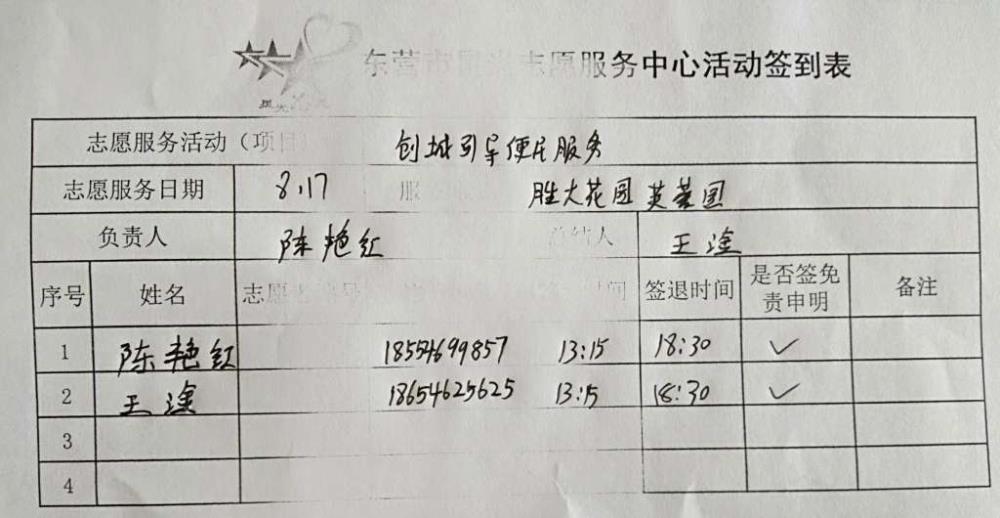 东营市 志愿服务中心活动签到表
志愿服务活动（项目 创城引导便民服务
志愿服务日期 8.17 服 胜大花园芙蓉园
负责人 陈艳红 总结人 王淦
序号 姓名 志愿 编号 时间 签退时间 是否签免责申明 备注
1 陈艳红 18554699857 13:15 18:30 ✓
2 王淦 18654625625 13:15 18:30 ✓
3
4